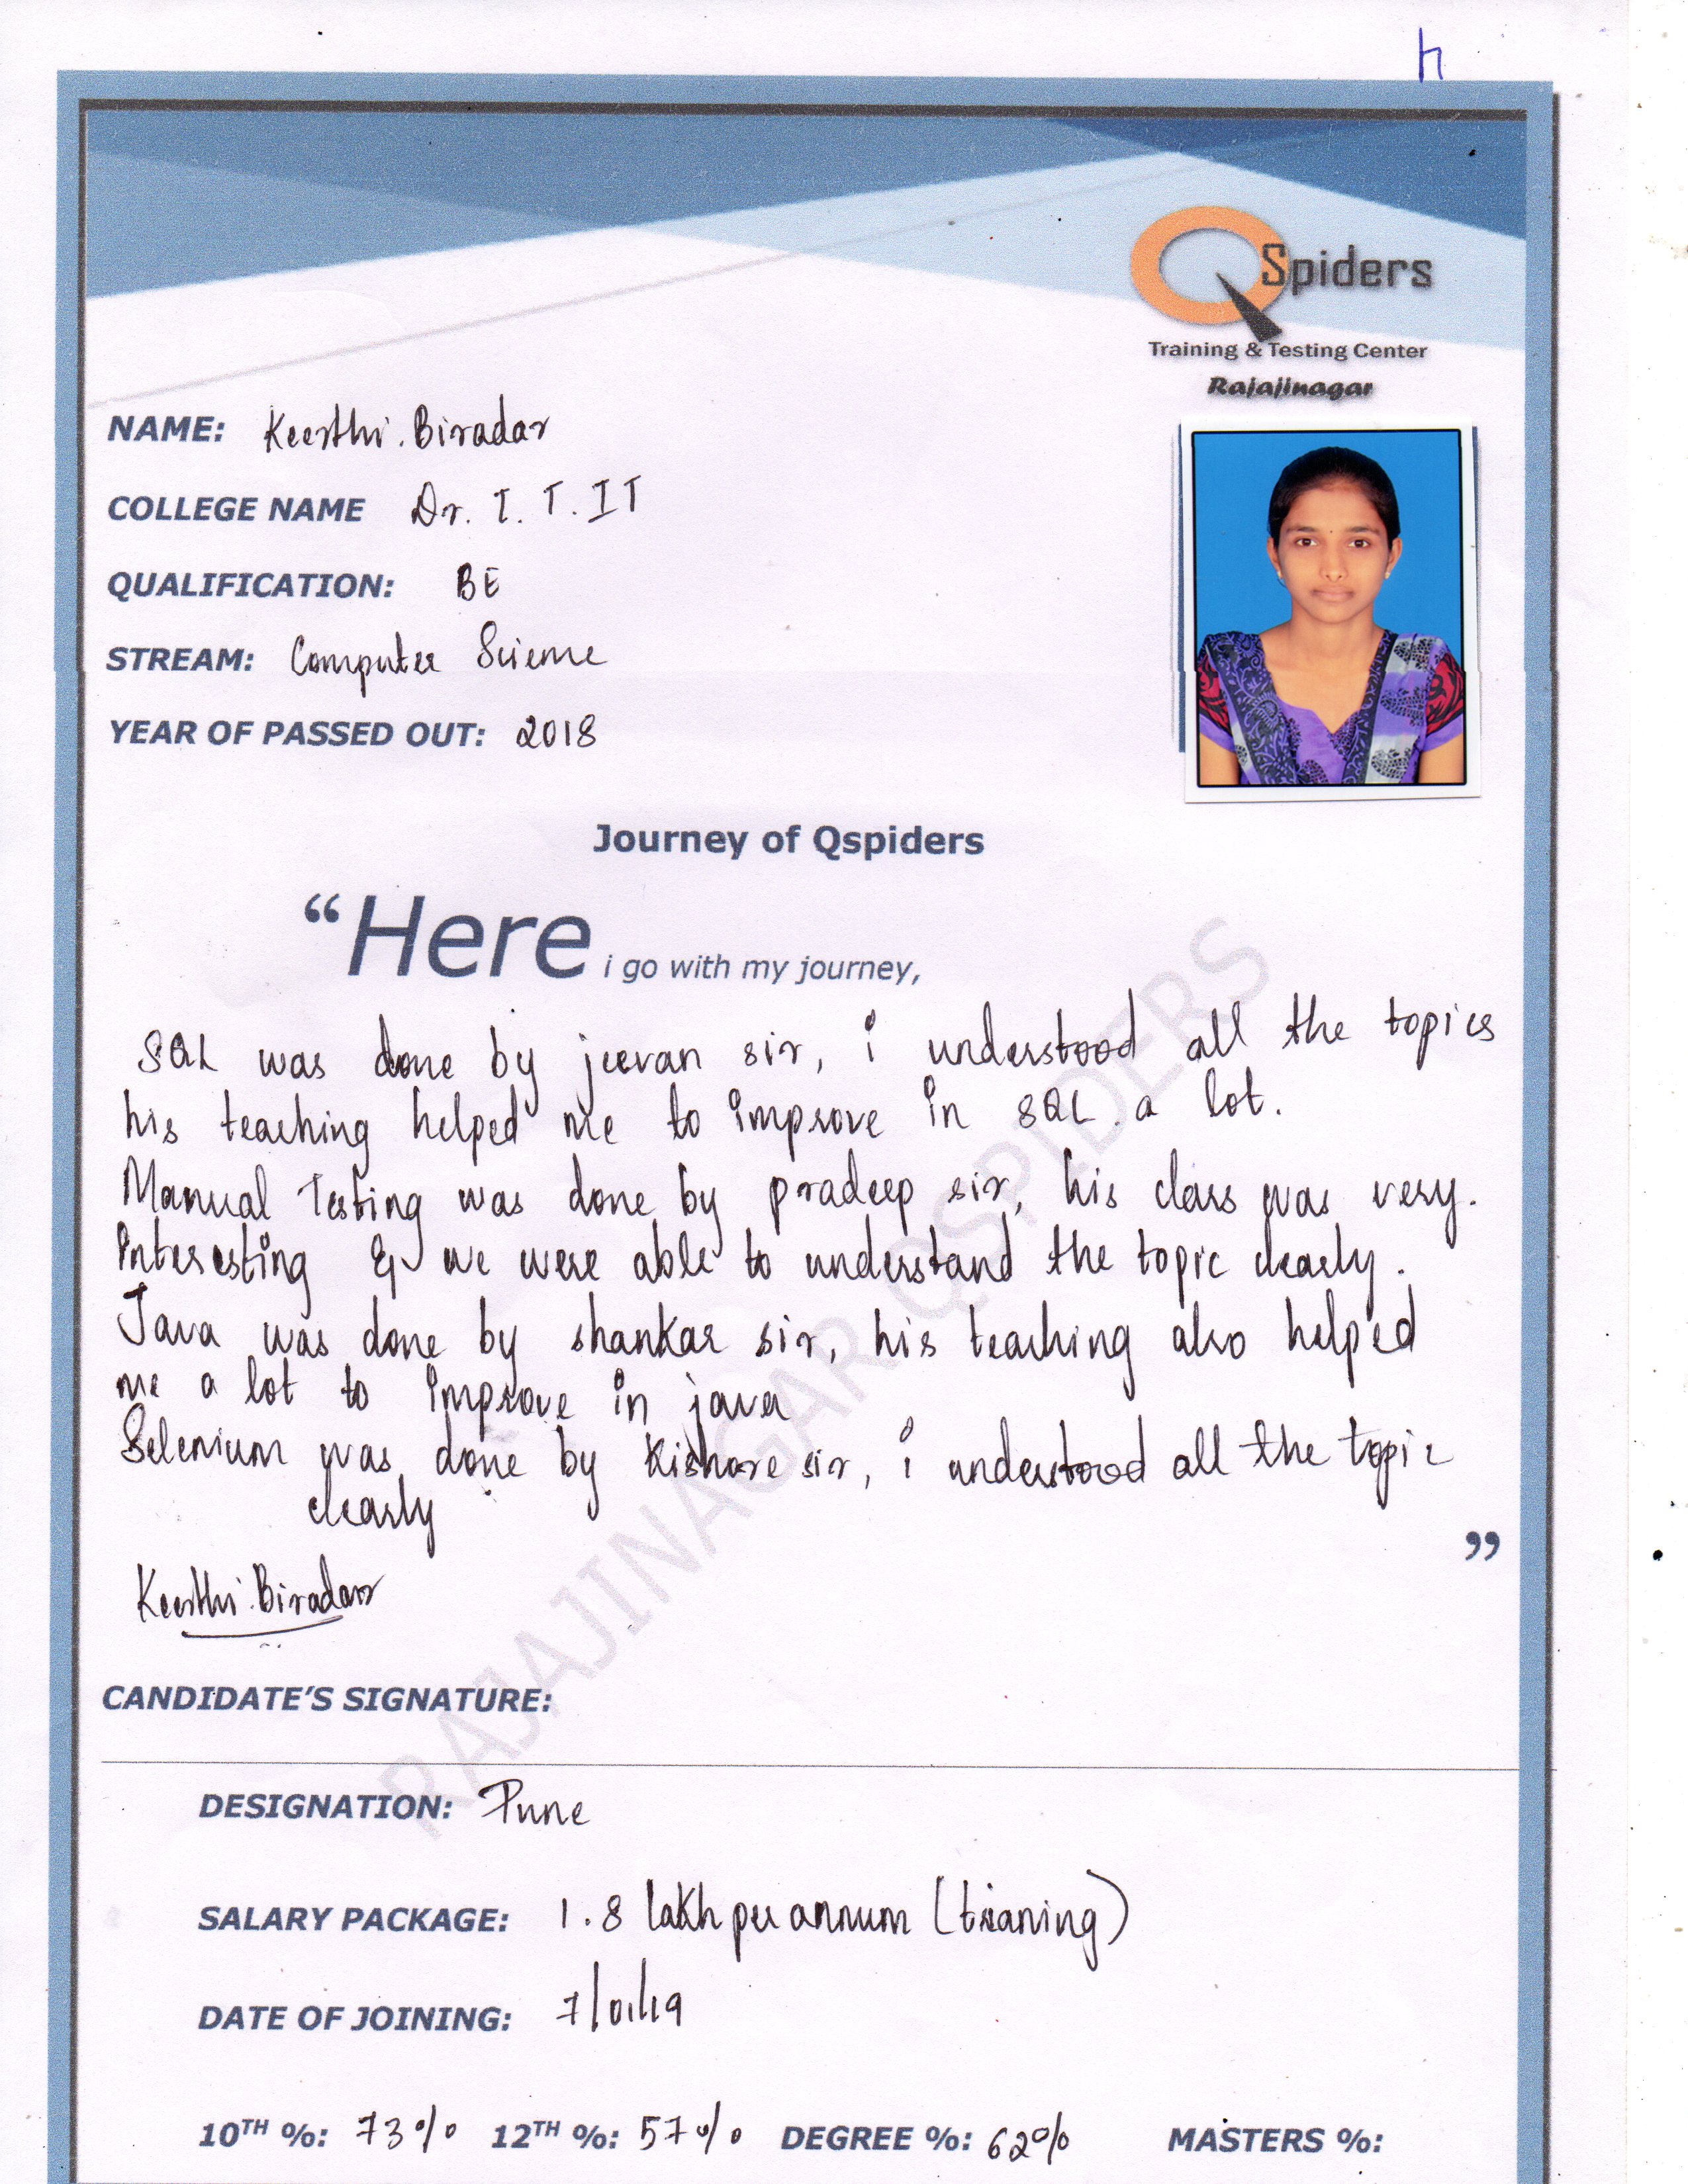 h
QSpiders
Training & Testing Center
Rajajinagar
NAME: Keerthi.Biradar
COLLEGE NAME Dr. T. T. IT
QUALIFICATION: BE
STREAM: Computer Science
YEAR OF PASSED OUT: 2018
Journey of Qspiders
“Here i go with my journey,
SQL was done by jeevan sir, i understood all the topics
his teaching helped me to improve in SQL a lot.
Manual Testing was done by pradeep sir, his class was very.
Interesting & we were able to understand the topic clearly.
Java was done by shankar sir, his teaching also helped
me a lot to improve in java
Selenium was done by Kishore sir, i understood all the topic
clearly
”
Keerthi.Biradar
CANDIDATE’S SIGNATURE:
DESIGNATION: Pune
SALARY PACKAGE: 1.8 lakh per annum (trianing)
DATE OF JOINING: 7/01/19
10TH %: 73% 12TH %: 57% DEGREE %: 62% MASTERS %:
RAJAJINAGAR QSPIDERS